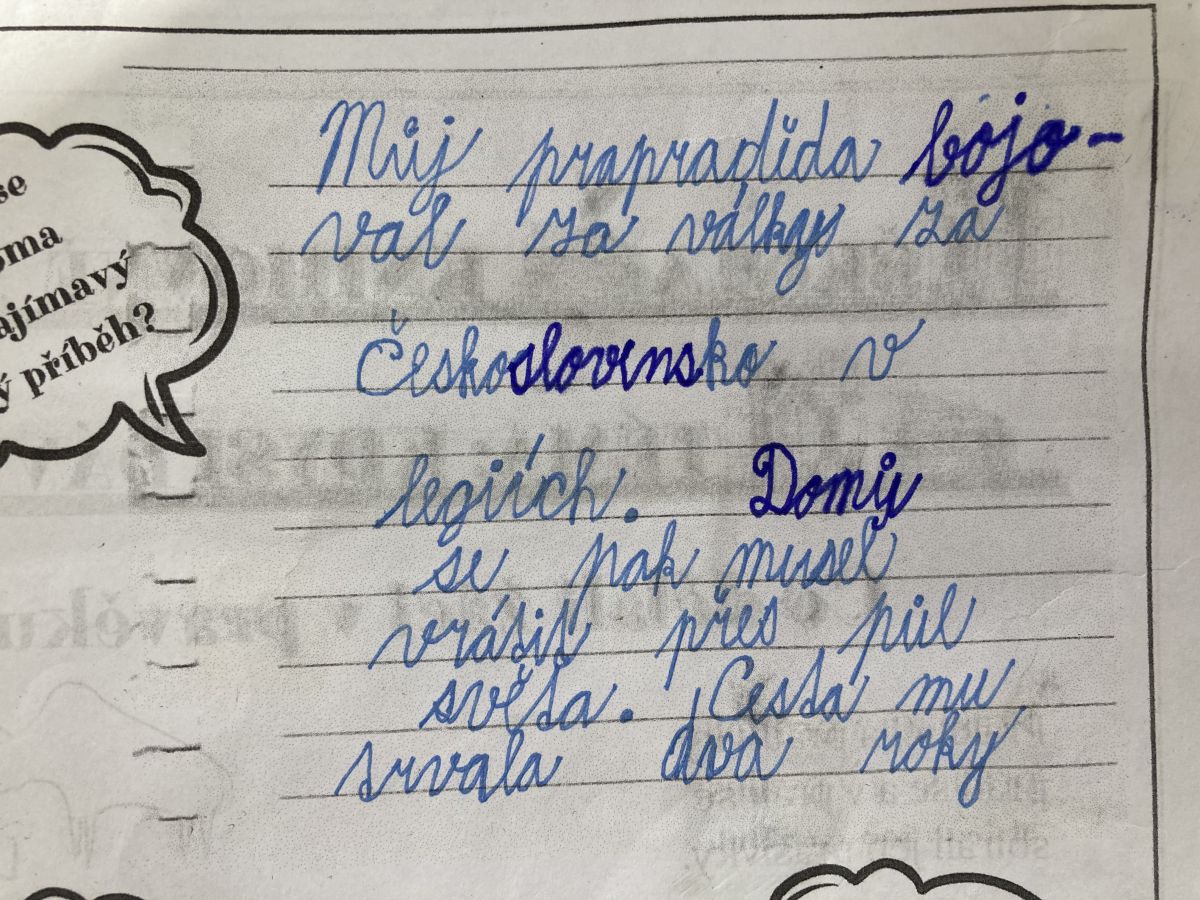 se
ajímavý
ý příběh?
Můj prapraděda bojo-
val za války za
Československo v
legiích. Domů
se pak musel
vrátit přes půl
světa. Cesta mu
trvala dva roky